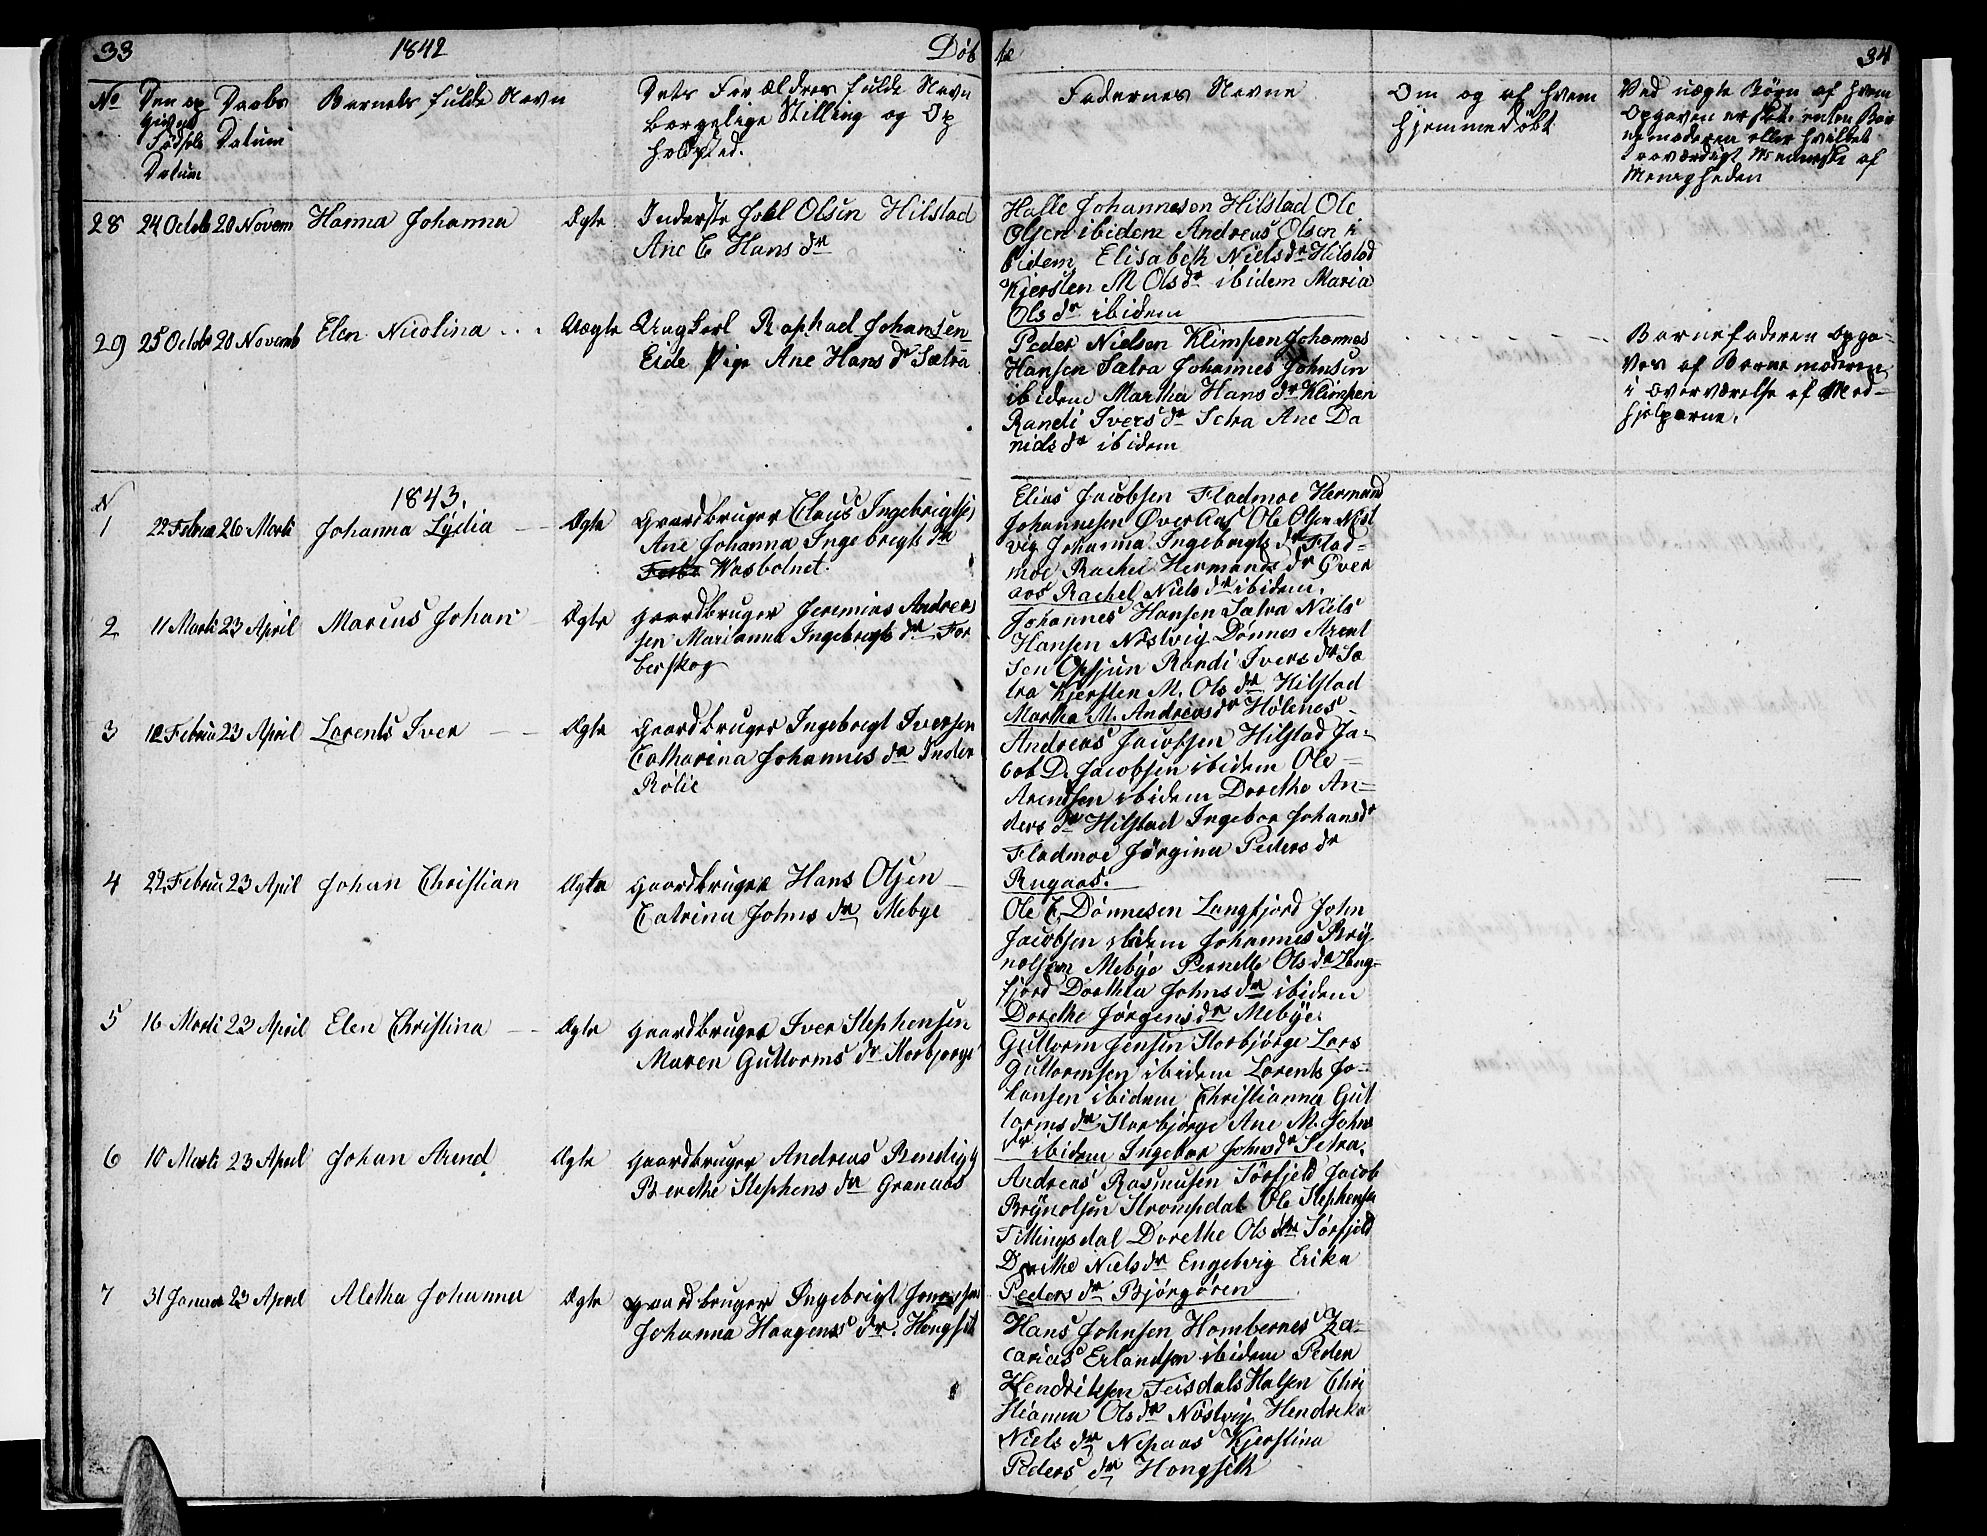 33
1842
Døb
te
34
No
Den op
givne
Fødsels
Datum
Daabs
Datum
Barnets fulde Navn
Dets Forældres fulde Navn
borgelige Stilling og Op
holdsted.
Fadernes Navne
Om og af hvem
hjemmedøbt
Ved uægte Børn af hvem
Opgaven er skede enten Bar
nemoderen eller hvilket
troværdigt Menneske af
Menigheden
28 24 Octob 20 Novem Hanna Johanna Ægte Inderste Joel Olsen Hilstad
Ane C Hans dr
Halle Johannesen Hilstad Ole
Olsen ibidem Andreas Olsen i
bidem Elisabeth Niels dr Hilstad
Kjersten M Ols dr ibidem Maria
Ols dr ibidem
29 25 Octob 20 Novemb Elen Nicolina Uægte Ungkarl Raphael Johansen
Eide Pige Ane Hans dr Sætra
Peder Nielsen Klimpen Johannes
Hansen Sætra Johannes Johnsen
ibidem Martha Hans dr Klimpen
Randi Ivers dr Setra Ane Da
niels dr ibidem
Barnefaderen opga-
ves af Barnemoderen
i overværelse af Med-
hjelperne.
N
1843.
1 22 Februa 26 Marti Johanna Lydia Ægte Gaardbruger Claus Ingebrigtsen
Ane Johanna Ingebregts dr
Wasbotnet.
Elias Jacobsen Fladmoe Hermand
Johannesen Øveraas Ole Olsen Nøst
vig Johanna Ingebregts dr Flad-
moe Rachel Hermands dr Øver
aas Rachel Niels dr ibidem.
2 11 Marti 23 April Marius Johan Ægte Gaardbruger Jeremias Andreas
sen Marianna Ingebregts dr For
berskog
Johannes Hansen Sætra Niels
Hansen Nøstvig Dønnes Arent
sen Opsjun Randi Ivers dr Sæ
tra Kjersten M. Ols dr Hilstad
Martha M. Andreas dr Holenes
3 12 Februa 23 April Lorents Iver Ægte Gaardbruger Ingebregt Iversen
Catharina Johannes dr Inder
Rølie
Andreas Jacobsen Hilstad Ja-
cob D. Jacobsen ibidem Ole
Arendsen ibidem Dorethe An-
ders dr Hilstad Ingebor Johans dr
Fladmoe Jørgina Peders dr
Rugaas.
4 22 Februa 23 April Johan Christian Ægte Gaardbruger Hans Olsen
Catrina Johns dr Mebye
Ole C. Dønnesen Langfjord John
Jacobsen ibidem Johannes Bry
nolsen Mebye Pernelle Ols dr Lang-
fjord Dorthea Johns dr ibidem
Dorethe Jørgens dr Mebye.
5 16 Marti 23 April Elen Christina Ægte Gaardbruger Iver Stephensen
Maren Guttorms dr Storbjørge
Guttorm Jensen Storbjørge Lars
Guttormsen ibidem Lorents Jo-
hansen ibidem Christianna Gut
torms dr Storbjørge Ane M. Johns
dr ibidem Ingebor Johns dr Setra.
6 10 Marti 23 April Johan Arend Ægte Gaardbruger Andreas
Berethe Stephens dr Granaas
Andreas Rasmusen Sørfjeld Jacob
Brynolsen Strompdal Ole Stephensen
Fillingsdal Dorethe Ols dr Sørfjeld
Dorethe Niels dr Engelvig Erika
Peders dr Bjørgøren
7 31 Januar 23 April Aletha Johanna Ægte Gaardbruger Ingebrigt
Johanna Haagens dr Hongset
Hans Johnsen Hombernes Za-
carias Erlandsen ibidem Peder
Hendriksen Feisdals Halsen Chri
stianna Ols dr Nøstvig Hendrika
Niels dr Nepaas Kjerstina
Peders dr Hongseth